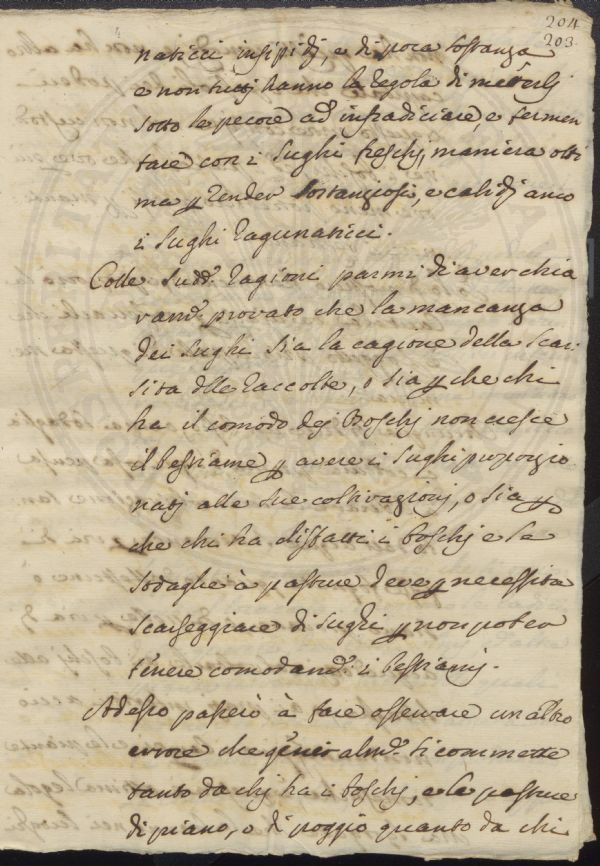 204
203
naticci insipidj, e di poca sostanza
e non tutti hanno la regola di metterlj
sotto le pecore ad infradiciare, e fermen
tare con i sughi freschj maniera otti
ma p render sostanziosi, e calidj anco
i sughi ragunaticci.
Colle sudd.e ragioni parmi di aver chia
ram.e provato che la mancanza
dei sughi sia la cagione della scar
sita dlle raccolte, o sia p che chi
ha il comodo dej Boschj non cresce
il bestiame p avere i sughi proporzio
natj alle sue coltivazionj, o sia p
che chi ha disfatti i boschj e la
sodaglie à pasture deve p necessita
scarseggiare di sughi p non poter
tenere comodam.e i bestiamj.
Adesso passerò à fare osservare un altro
errore che generalm.e si commette
tanto da chj ha i boschj, e le pasture
di piano, o di poggio quanto da chi